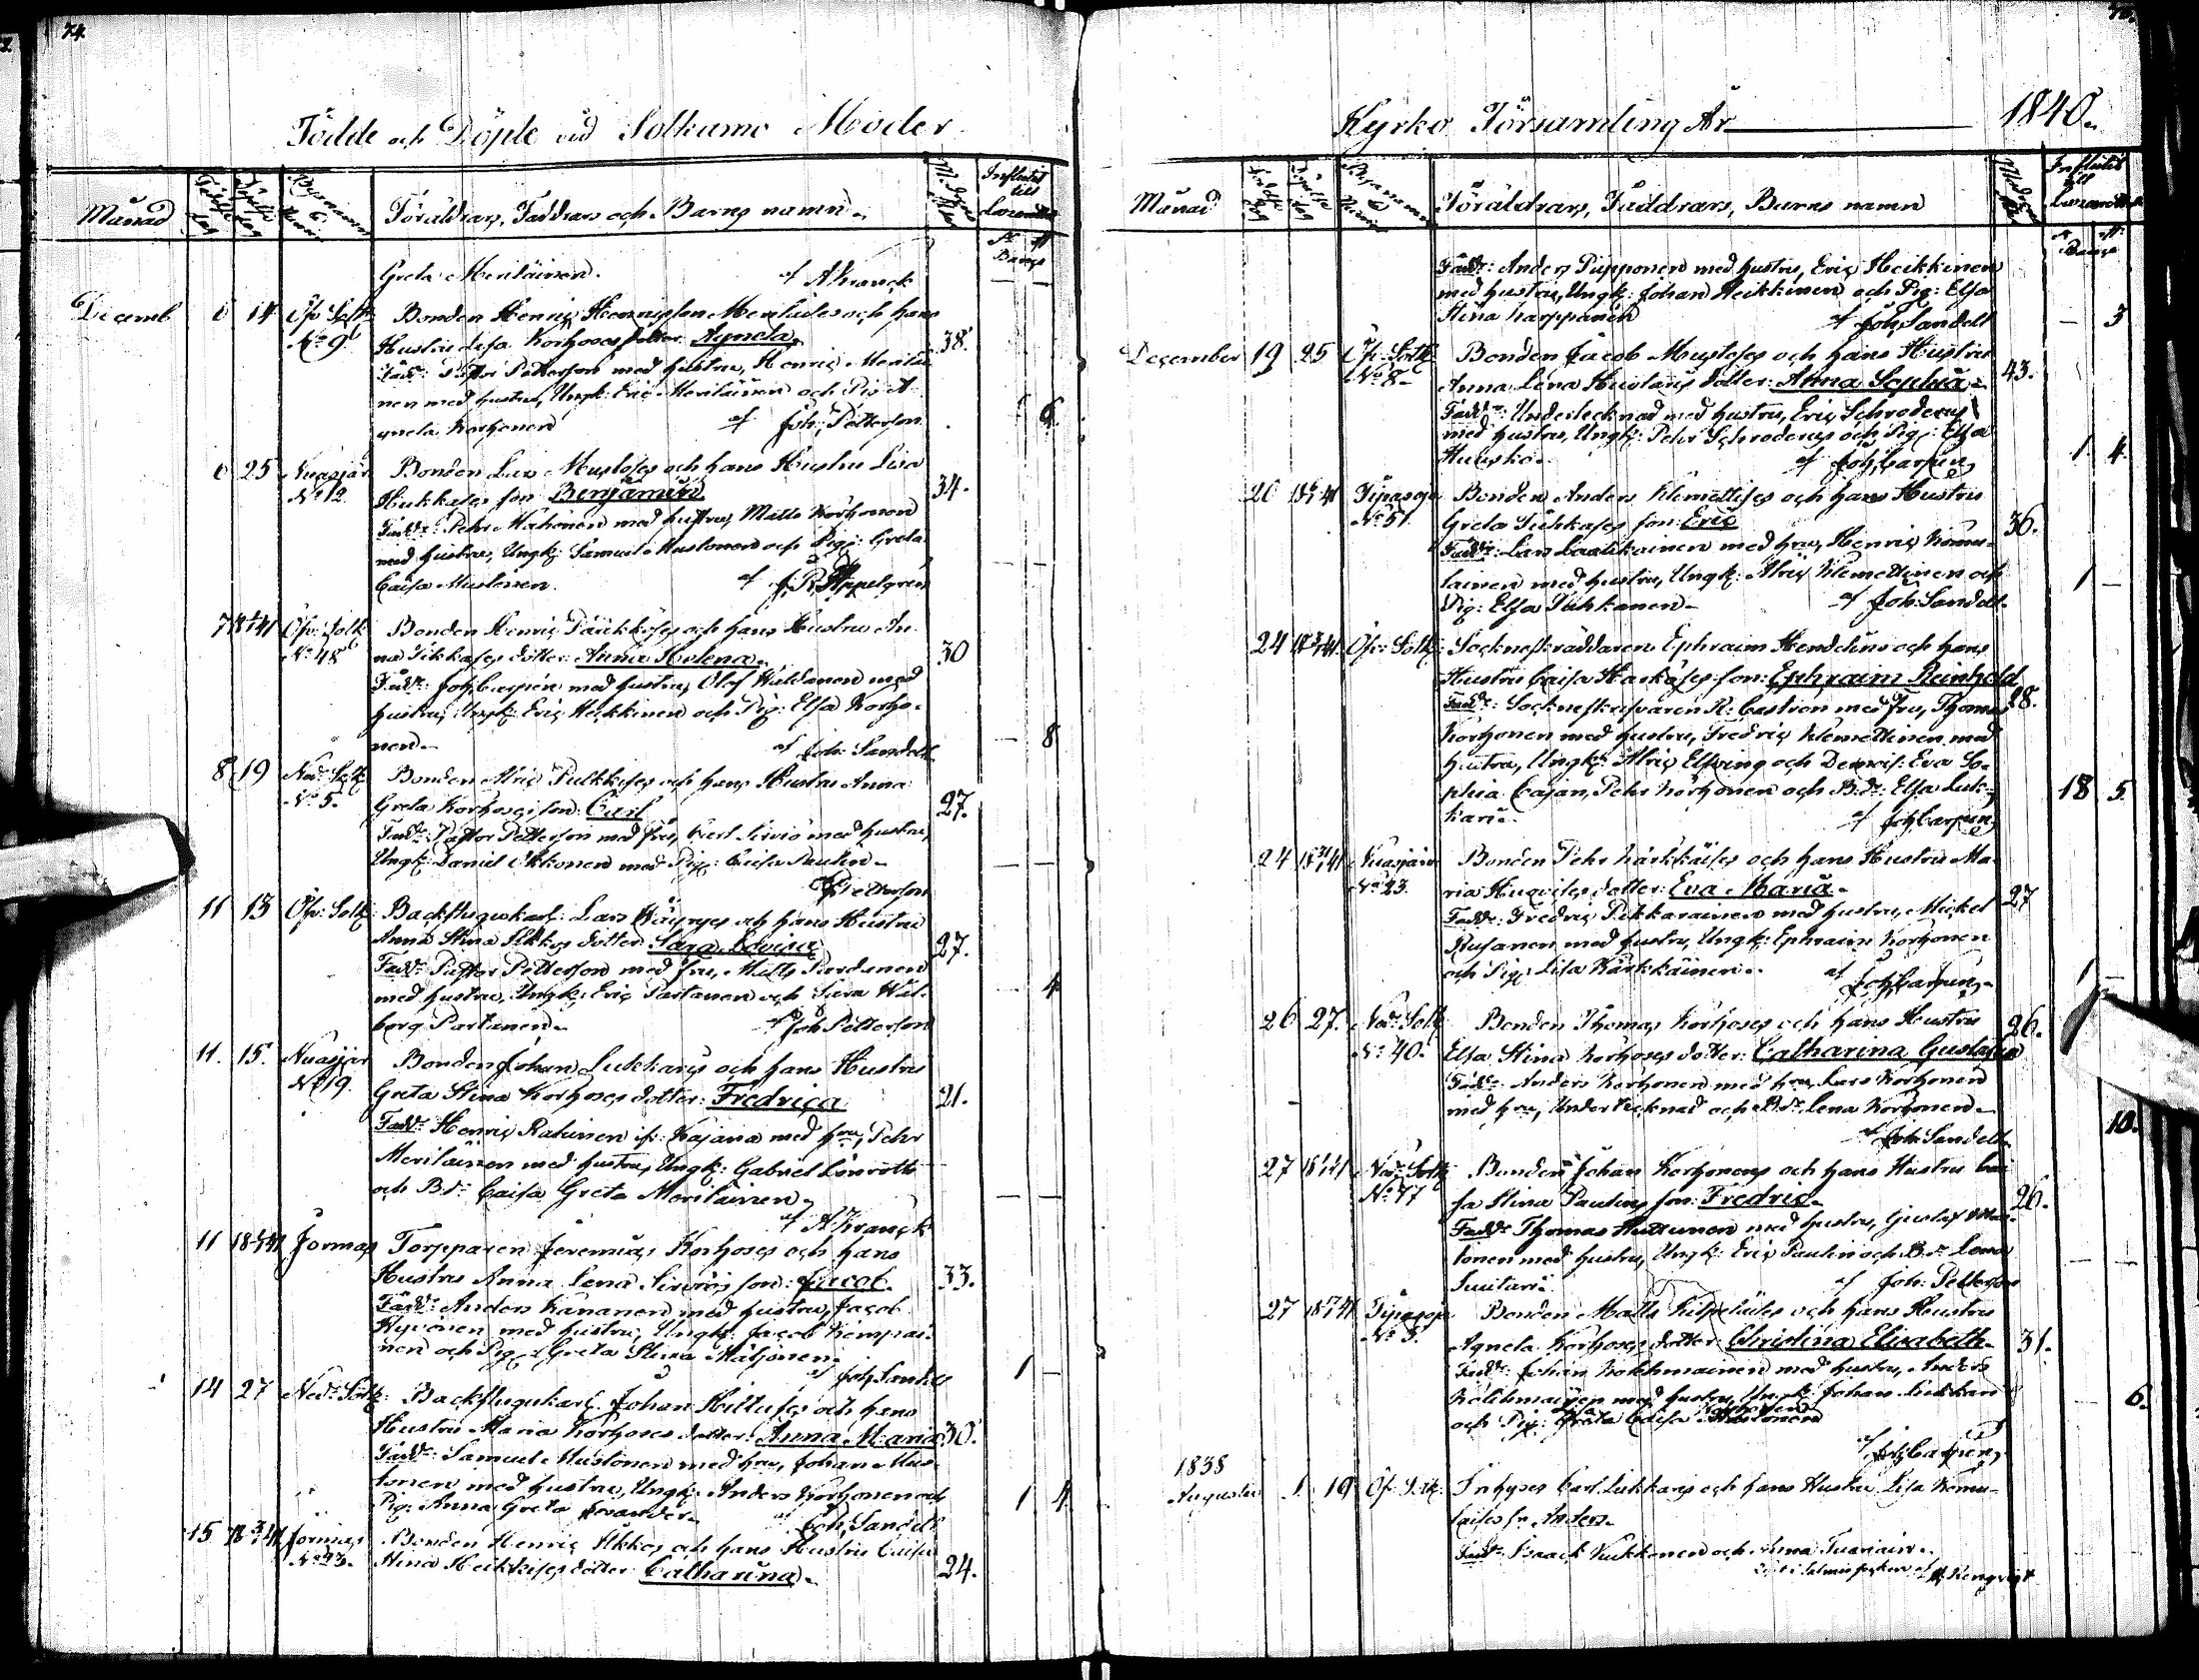 74.
Födde och Döpte vid Sotkamo Moder
Månad
Födelse dag
Döpelse dag
Bynamn & Num
Föräldrars, Faddrars och Barns namn.
Influtit till Lazarettet
Greta Meriläinen. af A Franck
Decemb 6 14 Öfv: Sotk: Bonden Henric Henricsson Meriläises och hans
No 9 Hustru Lisa Korhoses dotter: Agneta. 38.
Fadd: Pastor Petterson med hustru, Henric Meriläi-
nen med hustru, Ungk: Eric Meriläinen och Pig: A-
gneta Korhonen af Joh: Petterson 6.
6 25 Nuasjär Bonden Lars Mustoses och hans Hustru Lisa
No 12. Hukkases son: Benjamin 34.
Fadd: Pehr Mähönen med hustru, Matts Korhonen
med hustru, Ungk: Samuel Mustonen och Pig: Greta
Caisa Mustonen. af J. R. Appelgren
7 Öfv: Sotk: Bonden Henric Pääkköses och hans Hustru An-
No 48 na Tikkases dotter: Anna Helena. 30
Fadd: Joh Carpén med hustru, Olof Väldanen med
hustru, Ungk: Eric Heikkinen och Pig: Elsa Korho-
nen. af Joh: Sandelt 8
8 19 Ned: Sotk Bonden Alric Pulkkises och hans Hustru Anna
No 5. Greta Korhoses son: Carl 27.
Fadd: Pastor Petterson med fru, Carl Sirviö med hustru,
Ungk: Daniel Okkonen med Pig: Caisa Paulin.
Petterson
11 13 Öfv: Sotk: Backstugukarl: Lars Väyryes och hans Hustru
Anna Stina Ilkkos dotter: Sara Lovisa 27.
Fadd: Pastor Petterson med fru, Matts Partanen
med hustru, Ungk: Eric Partanen och Sara Wal- 4
borg Partanen. af Joh Petterson
11. 15. Nuasjär Bonden Johan Lukkaris och hans Hustru
No 19. Greta Stina Korhoses dotter: Fredrica 21.
Fadd: Henric Rahunen if: Kajana med hru, Pehr
Meriläinen med hustru, Ungk: Gabriel Lönroth
och B:dr Caisa Greta Meriläinen.
af A Franck
11 Jormas Torpparen Jeremias Korhoses och hans
Hustru Anna Lena Sirviös son: Jacob. 33.
Fadd: Anders Kananen med hustru, Jacob
Hyvönen med hustru, Ungk: Jacob Kempai-
nen och Pig: Greta Stina Mäljönen.
af Joh Sandelt 1 —
14 27 Ned: Sotk: Backstugukarl. Johan Hiltuses och hans
Hustru Maria Korhoses dotter: Anna Maria 30.
Fadd: Samuel Mustonen med hru, Johan Mus-
tonen med hustru, Ungk: Anders Korhonen och
Pig: Anna Greta Forander. af Joh. Sandelt 1 4
15 Jormas Bonden Henric Ilkkos och hans Hustru Caisa
No 23. Stina Heikkises dotter: Catharina. 24.
Kyrko Församling År 1840.
Månad
Födelse dag
Döpelse dag
Bynamn & Num
Föräldrars, Faddrars, Barns namn
Influtit till Lazarettet
Fadd: Anders Piipponen med hustru, Eric Heikkinen
med hustru, Ungk: Johan Heikkinen och Pig: Elsa
Stina Karppanen af Joh: Sandelt — 3
December 19 25 Öfv: Sotk: Bonden Jacob Mustoses och hans Hustru
No 8. Anna Lena Huotaris dotter: Anna Sophia. 43.
Fadd: Undertecknad med hustru, Eric Schroderus
med hustru, Ungk: Pehr Schroderus och Pig: Elsa
Huusko. af Joh Carpén 1. 4.
20 Tipasoja Bonden Anders Klemettises och hans Hustru
No 51. Greta Tuhkases son: Eric 36.
Fadd: Lars Laatikainen med hru, Henric Komu-
lainen med hustru, Ungk: Alric Klemettinen och
Pig: Elsa Tuhkanen. af Joh: Sandelt. 1 —
24 Öfv: Sotk: Sockneskräddaren Ephraim Hendelins och hans
Hustru Caisa Harkoses son: Ephraim Reinhold 28.
Fadd: Sockneskrifvaren A: Castren med fru, Thomas
Korhonen med hustru, Fredric Klemettinen med
hustru, Ungk: Alric Elfving och Demois: Eva So-
phia Cajan, Pehr Korhonen och B:dr: Elsa Luk-
kari. af Joh Carpén 18 5.
24 Nuasjärv Bonden Pehr Kärkkäises och hans Hustru Ma-
No 23. ria Huovises dotter: Eva Maria. 27
Fadd: Fredric Pikkarainen med hustru, Mickel
Rusanen med hustru, Ungk: Ephraim Korhonen
och Pig: Lisa Kärkkäinen. af Joh Carpén. 1 —
26 27. Ned: Sotk Bonden Thomas Korhoses och hans Hustru 26.
No 40. Elsa Stina Korhoses dotter: Catharina Gustafva
Fadd: Anders Korhonen med hru, Lars Korhonen
med hru, Undertecknad och B:dr: Lena Korhonen.
af Joh: Sandelt. 10.
27 Ned: Sotk Bonden Johan Korhonens och hans Hustru Cai
No 47 sa Stina Paulins son: Fredric. 26.
Fadd: Thomas Huttunen med hustru, Gustaf Mus-
tonen med hustru, Ungk: Eric Paulin och B:dr Lena
Suutari. af Joh: Petterson
27 Tipasoja Bonden Matts Kilpeläises och hans Hustru
No 3. Agneta Korhoses dotter: Christina Elisabeth. 31.
Fadd: Johan Kolehmainen med hustru, Anders
Kolehmainen med hustru, Ungk: Johan Lukkari
och Pig: Caisa Korhonen 6.
af Joh Carpén
1838
Augusti 1. 19 Öf: Sotk: Inhyses Carl Lukkaris och hans Hustru Lisa Komu-
laises sn Anders.
Fadd: Isaack Kukkonen och Anna Tuariain.